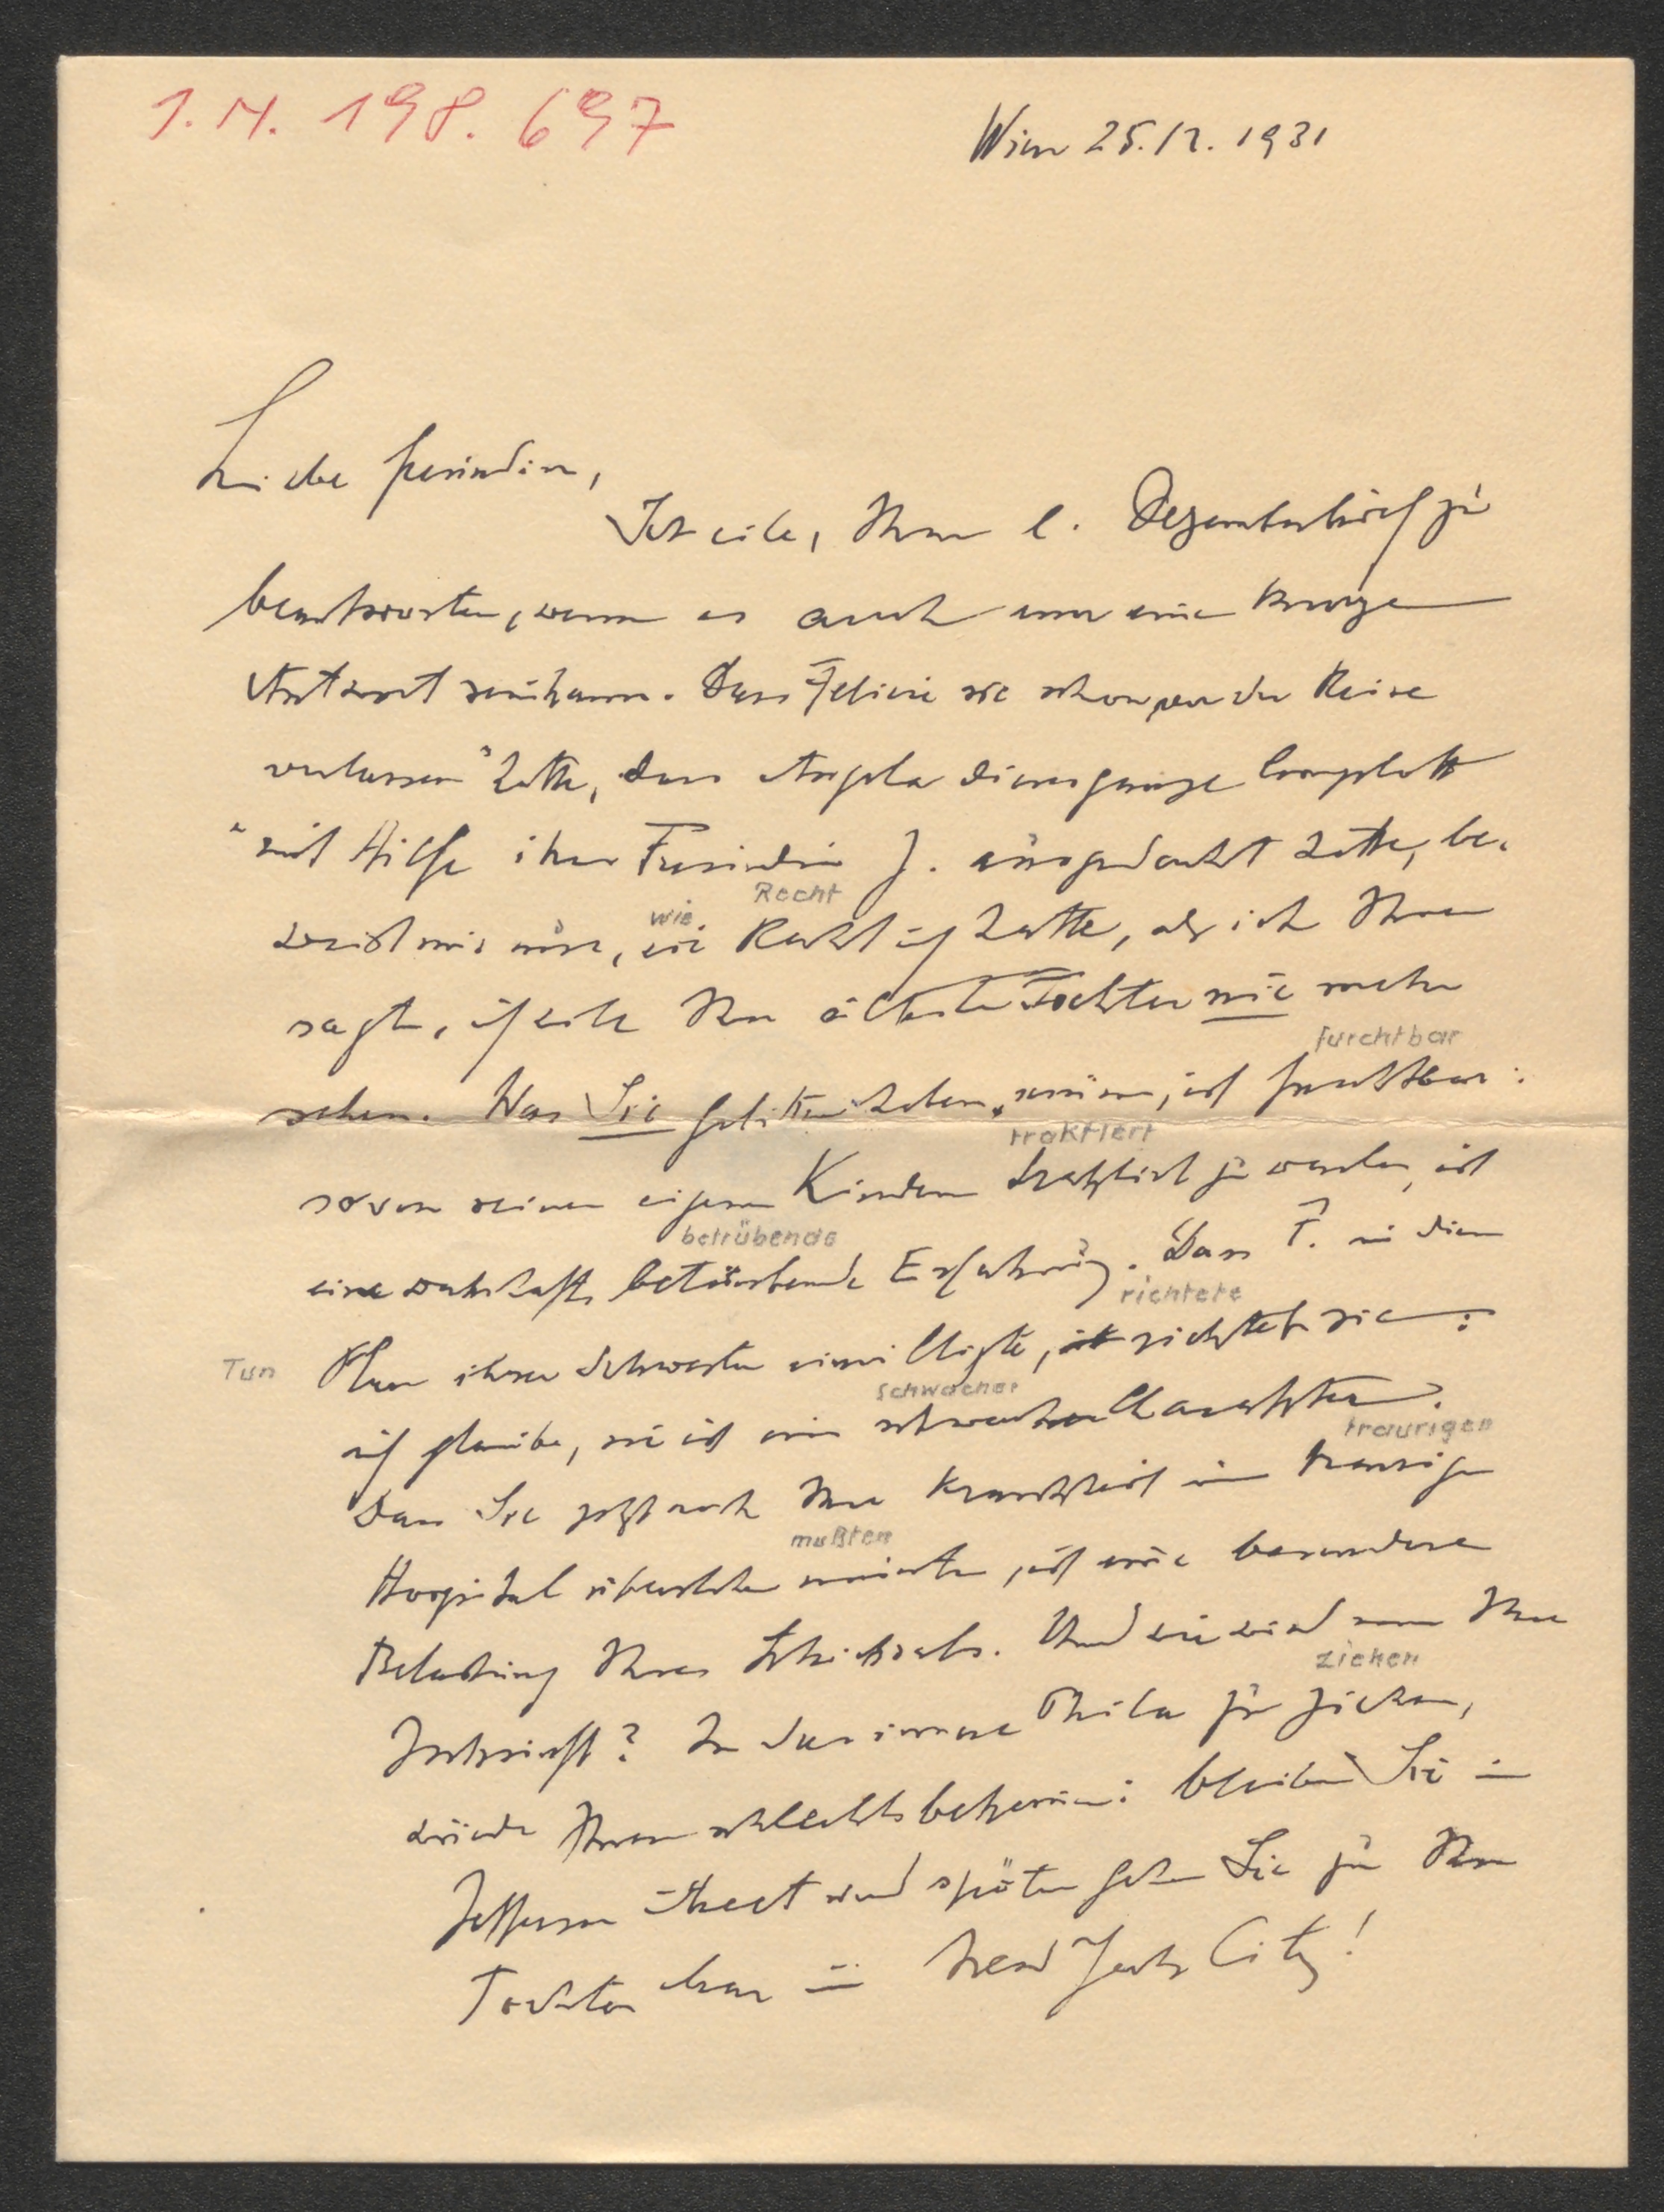 I.N. 198.697
Wien 25./12. 1931
Liebe Freundin,
Ich eile, Ihren l. Dezemberbrief zu
beantworten, wenn es auch nur eine kurze
Antwort sein kann. Dass Felicie sie schon vor der Reise
verlassen hatte, dass Angela dieses ganze Complott
mit Hilfe ihrer Freundin J. ausgedacht hatte, be-
weist mir nur, wie Recht ich hatte, als ich Ihnen
wie Recht
sagte, ich Ihre älteste Tochter nie mehr
furchtbar
sehen. Was Sie gelitten haben müssen, ist furchtbar:
traktiert
so von seinen eigenen Kindern traktiert zu werden, ist
betrübende
eine wahrhaft betrübende Erfahrung. Dass F. in den
richtete
Tun
Plan ihrer Schwester einwilligte, richtet sie:
schwacher
ich glaube, sie ist ein schwacher Charakter.
traurigen
Dass Sie jetzt noch Ihre Krankheit im traurigen
mußten
Hospital überstehen mussten, ist eine besondere
Belastung Ihres Schicksals. Und wie wird nun Ihre
ziehen
Zukunft? In das immense Phila zu ziehen,
würde Ihnen schlecht bekommen: bleiben Sie in
Jefferson Street und später gehen Sie zu Ihrer
Tochter in New York City!